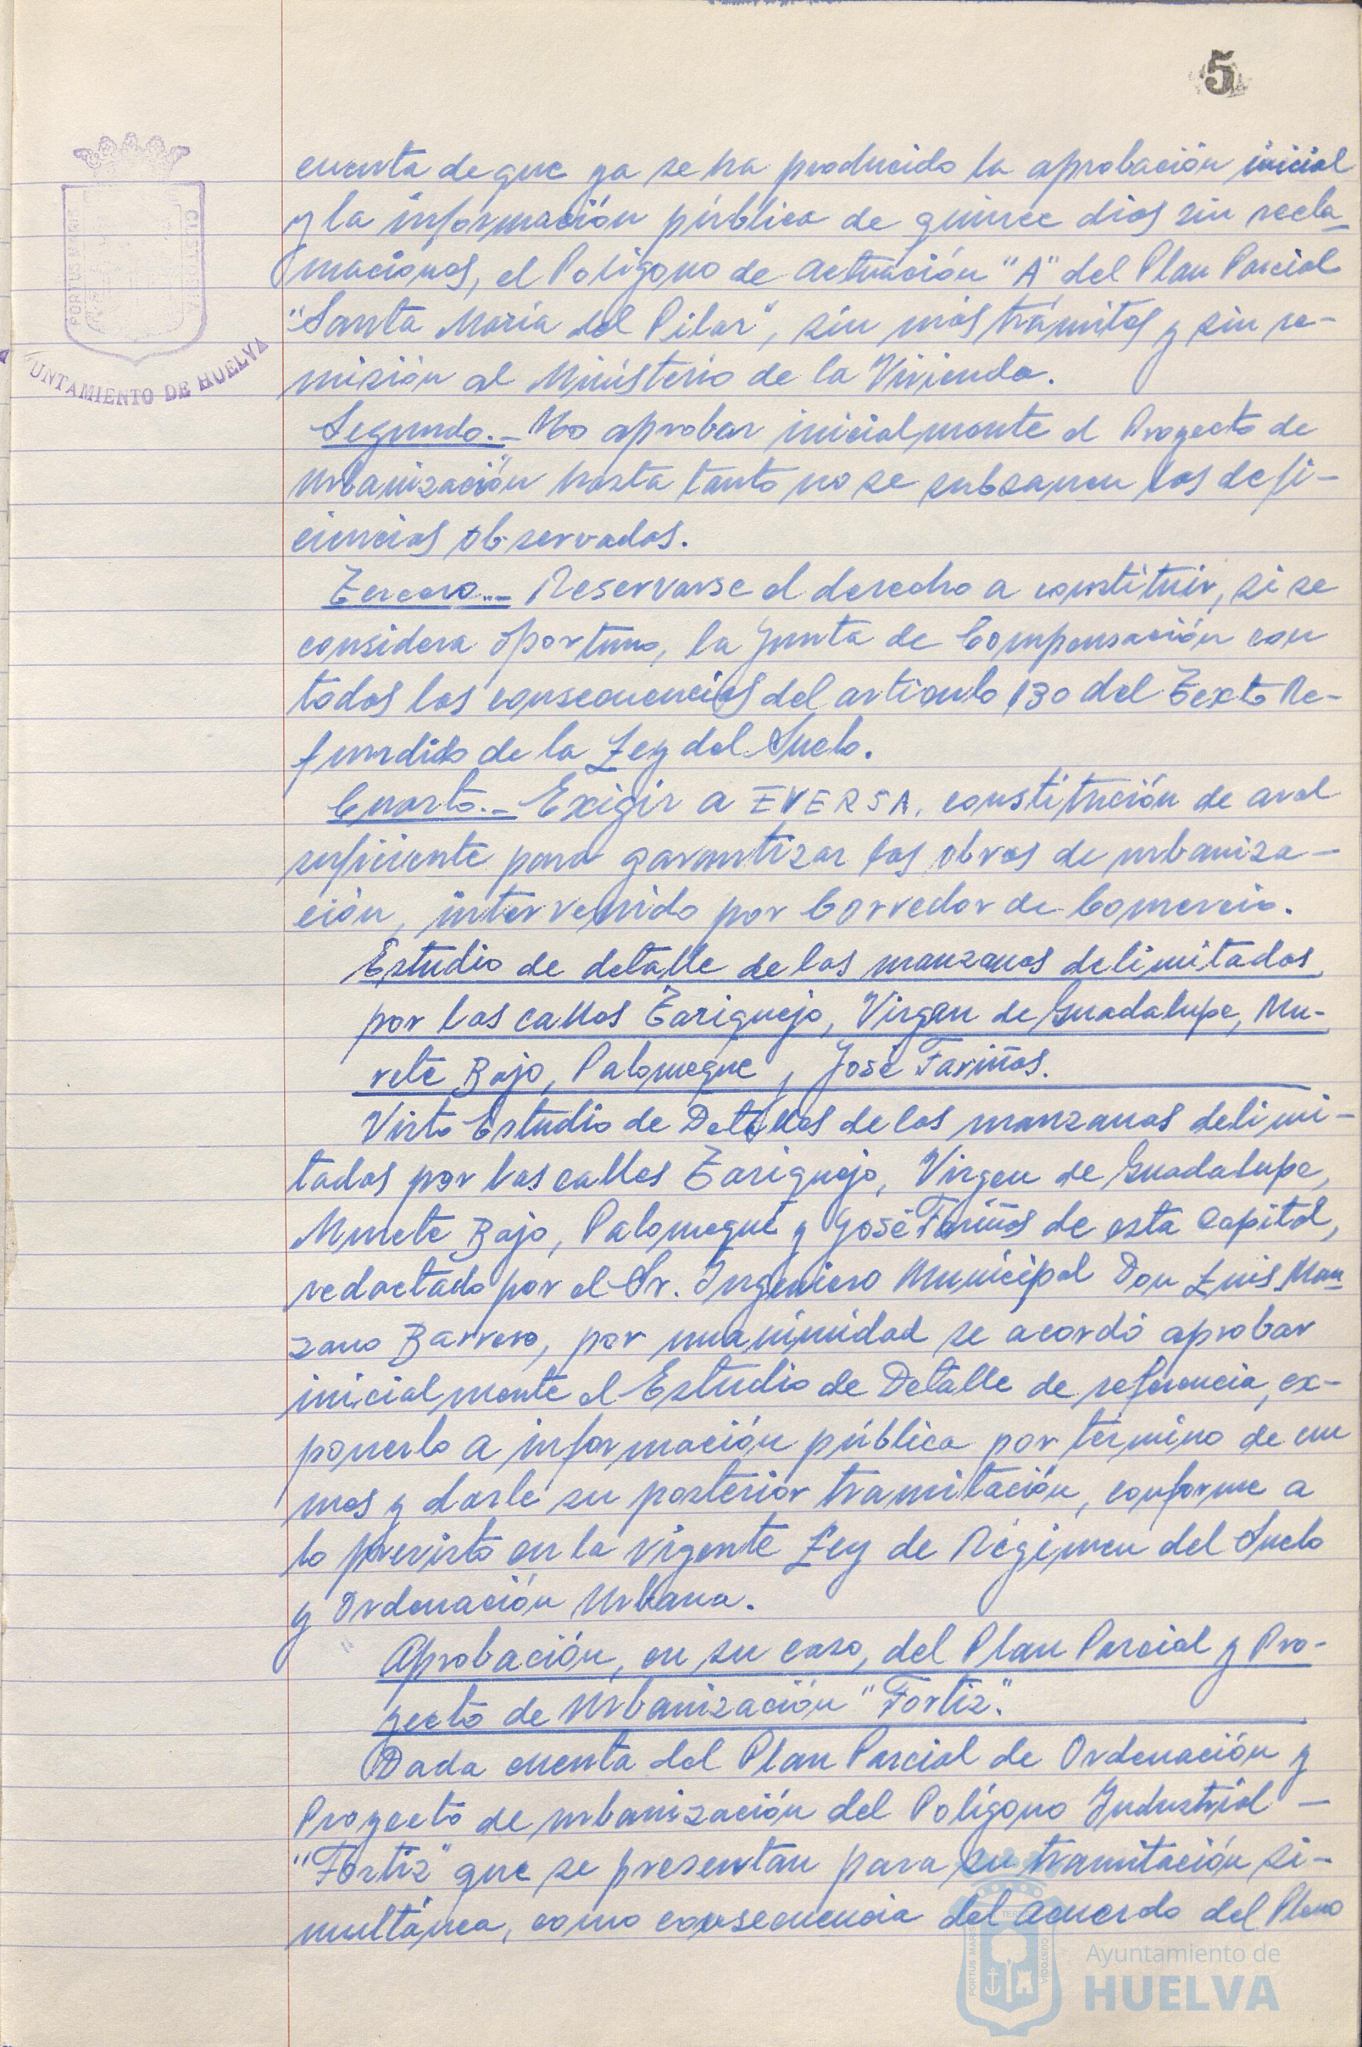 5
PORTUS MARIS
CUSTODIA
AYUNTAMIENTO DE HUELVA
cuenta de que ya se ha producido la aprobación inicial
y la información pública de quince dias sin recla-
maciones, el Poligono de actuación "A" del Plan Parcial
"Santa Maria del Pilar", sin más trámites y sin re-
misión al Ministerio de la Vivienda.
Segundo.- No aprobar inicialmente el Proyecto de
Urbanización hasta tanto no se subsanen las defi-
ciencias observadas.
Tercero.- Reservarse el derecho a constituir, si se
considera oportuno, la Junta de Compensación con
todas las consecuencias del articulo 130 del Texto Re-
fundido de la Ley del Suelo.
Cuarto.- Exigir a EVERSA, constitución de aval
suficiente para garantizar las obras de urbaniza-
ción, intervenido por Corredor de Comercio.
Estudio de detalle de las manzanas delimitadas
por las calles Tariquejo, Virgen de Guadalupe, Mu-
rete Bajo, Palomeque, José Fariñas.
Visto Estudio de Detalles de las manzanas delimi-
tadas por las calles Tariquejo, Virgen de Guadalupe,
Murete Bajo, Palomeque y José Fariñas de esta Capital,
redactado por el Sr. Ingeniero Municipal Don Luis Man-
zano Barrero, por unanimidad se acordó aprobar
inicialmente el Estudio de Detalle de referencia, ex-
ponerlo a información pública por término de un
mes y darle su posterior tramitación, conforme a
lo previsto en la vigente Ley de Régimen del Suelo
y Ordenación Urbana.
Aprobación, en su caso, del Plan Parcial y Pro-
yecto de Urbanización "Fortiz".
Dada cuenta del Plan Parcial de Ordenación y
Proyecto de urbanización del Polígono Industrial -
"Fortiz" que se presentan para su tramitación si-
multánea, como consecuencia del acuerdo del Pleno
PORTUS MARIS
CUSTODIA
Ayuntamiento de
HUELVA